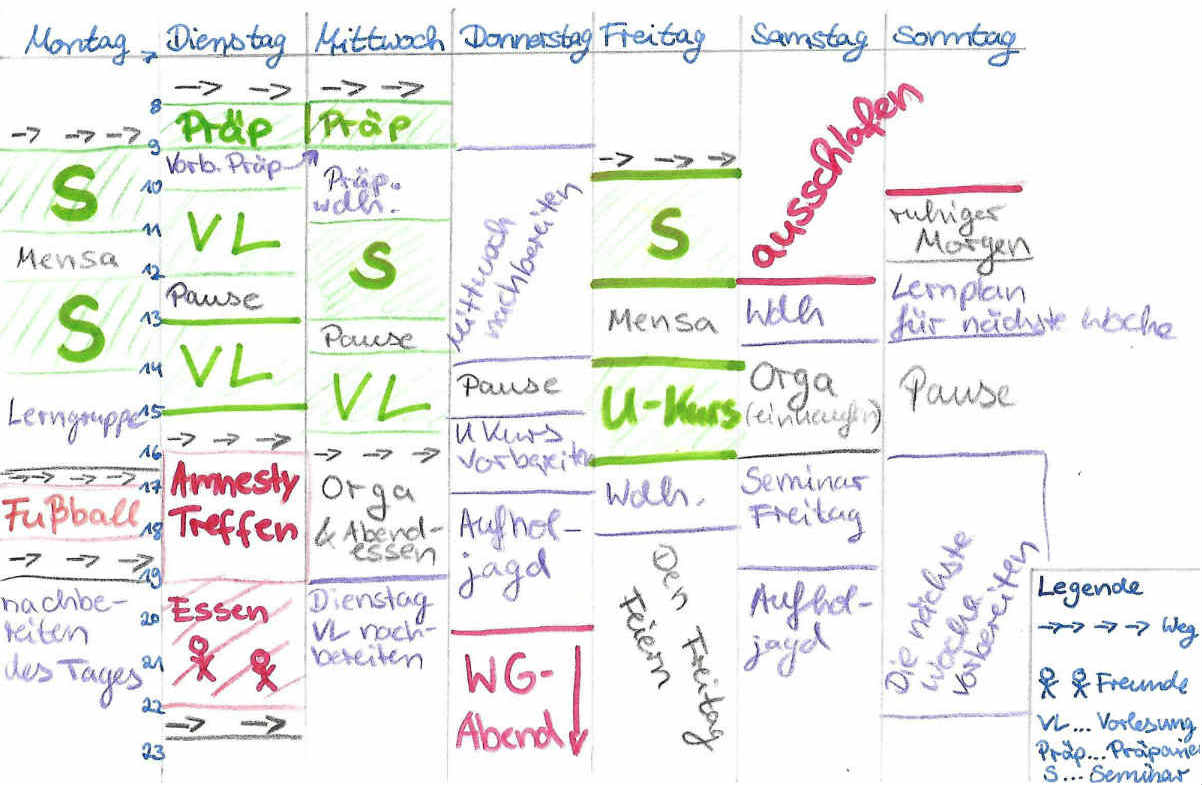 Montag
Dienstag
Mittwoch
Donnerstag
Freitag
Samstag
Sonntag
7
8
9
10
11
12
13
14
15
16
17
18
19
20
21
22
23
S
Mensa
S
Lerngruppe
Fußball
nachbe-
reiten
des Tages
Präp
Vorb. Präp
VL
Pause
VL
Amnesty
Treffen
Essen
Präp
Präp.
wdh.
S
Pause
VL
Orga
& Abend-
essen
Dienstag
VL nach-
bereiten
Mittwoch
nachbereiten
Pause
U Kurs
vorbereiten
Aufhol-
jagd
WG-
Abend
S
Mensa
U-Kurs
Wdh.
Den Freitag
Feiern
ausschlafen
Wdh
Orga
(einkaufen)
Seminar
Freitag
Aufhol-
jagd
ruhiger
Morgen
Lernplan
für nächste Woche
Pause
Die nächste
Woche
vorbereiten
Legende
Weg
Freunde
VL... Vorlesung
Präp... Präparie
S... Seminar